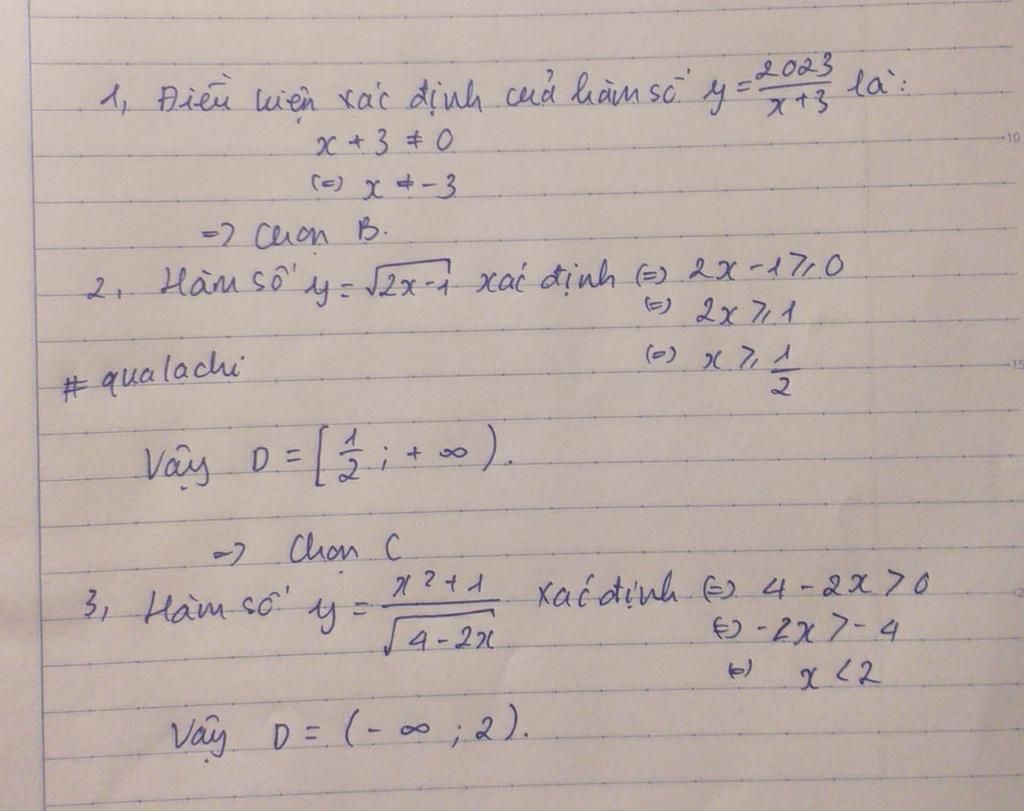 1, Điều kiện xác định của hàm số y = 2023/(x+3) là:
x + 3 ≠ 0
(=) x ≠ -3
=> Chọn B.
2, Hàm số y = √(2x-1) xác định (=) 2x - 1 ⩾ 0
(=) 2x ⩾ 1
(=) x ⩾ 1/2
# qualachi
Vậy D = [1/2; + ∞).
=> Chọn C
3, Hàm số y = (x² + 1)/√(4-2x) xác định (=) 4 - 2x > 0
(=) -2x > -4
(=) x < 2
Vậy D = (- ∞ ; 2).